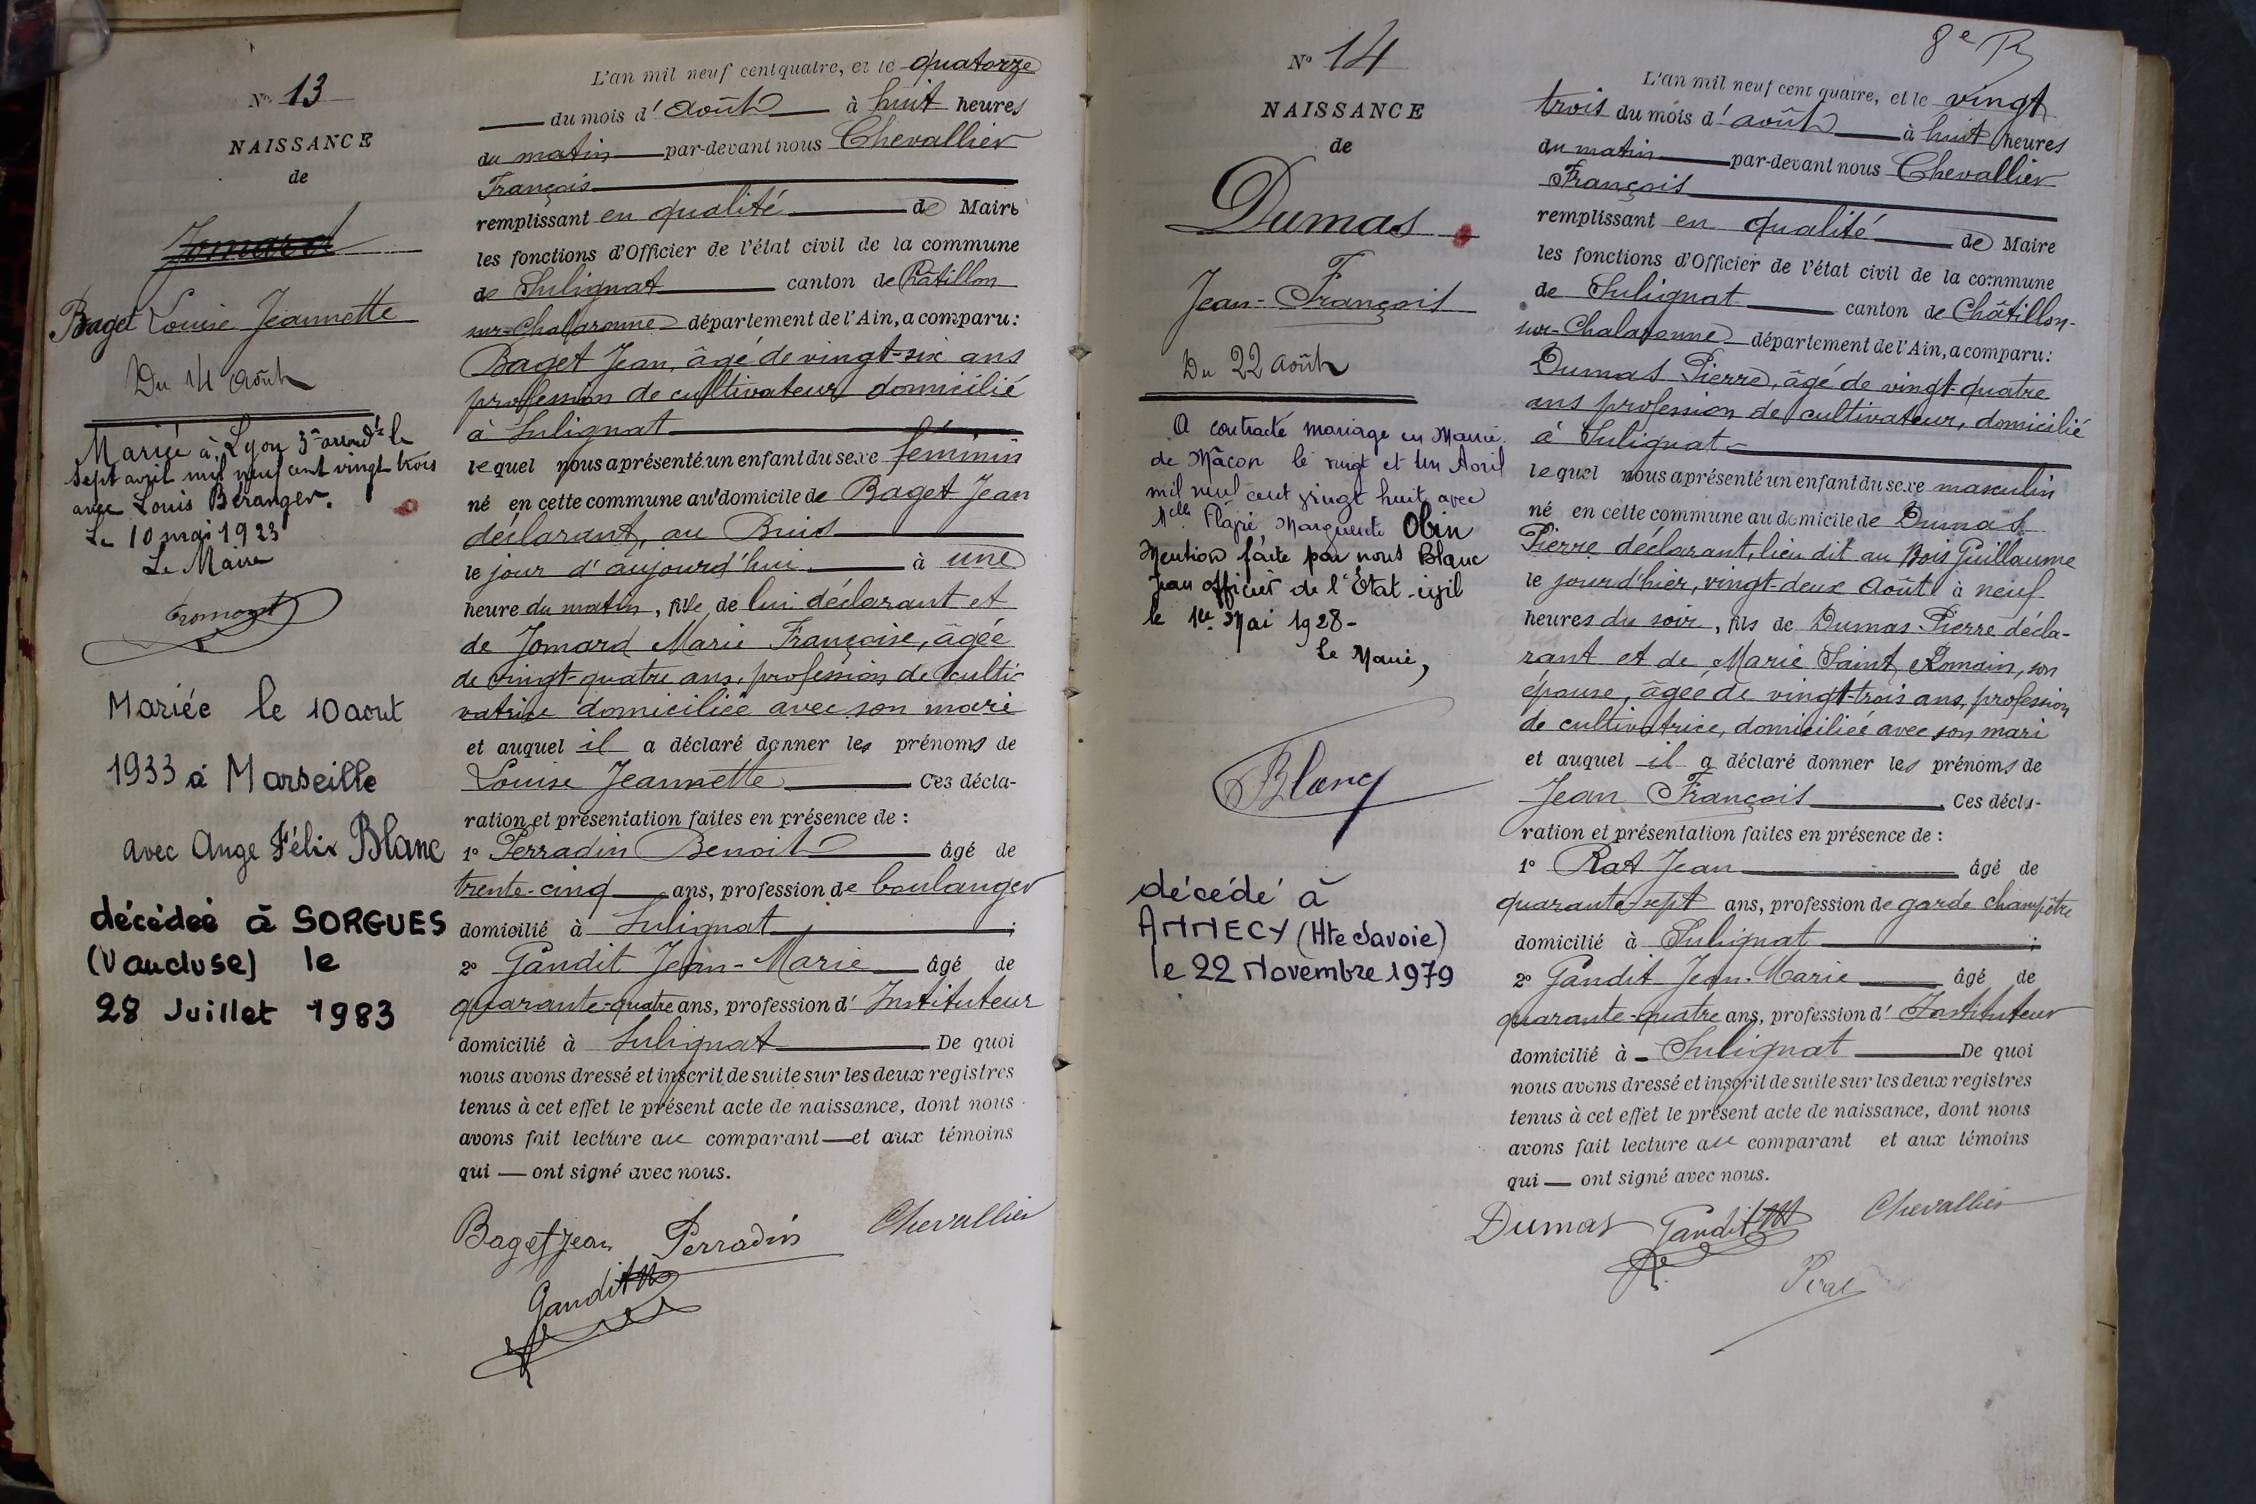 N° 13
NAISSANCE
de
Jomard
Baget Louise Jeannette
Du 14 Août
Mariée à Lyon 3e arrondt le
sept avril mil neuf cent vingt trois
avec Louis Béranger.
Le 10 mai 1923
Le Maire
Mariée le 10 aout
1933 à Marseille
avec Ange Félix Blanc
décédée à SORGUES
(Vaucluse) le
28 Juillet 1983
L'an mil neuf cent quatre, et le quatorze
du mois d'août à huit heures
du matin par-devant nous Chevallier
François
remplissant en qualité de Maire
les fonctions d'Officier de l'état civil de la commune
de Sulignat canton de Châtillon
sur-Chalaronne département de l'Ain, a comparu:
Baget Jean, âgé de vingt-six ans
profession de cultivateur domicilié
à Sulignat
lequel nous a présenté un enfant du sexe féminin
né en cette commune au domicile de Baget Jean
déclarant, au Buis
le jour d'aujourd'hui à une
heure du matin, fille de lui déclarant et
de Jomard Marie Françoise, âgée
de vingt-quatre ans, profession de culti-
vatrice domiciliée avec son mari
et auquel il a déclaré donner les prénoms de
Louise Jeannette Ces décla-
ration et présentation faites en présence de :
1° Perradin Benoit âgé de
trente-cinq ans, profession de boulanger
domicilié à Sulignat ;
2° Gandit Jean-Marie âgé de
quarante-quatre ans, profession d'Instituteur
domicilié à Sulignat De quoi
nous avons dressé et inscrit de suite sur les deux registres
tenus à cet effet le présent acte de naissance, dont nous
avons fait lecture au comparant et aux témoins
qui ont signé avec nous.
Baget Jean Perradin Chevallier
Gandit
8e
N° 14
NAISSANCE
de
Dumas
Jean-François
Du 22 Août
A contracté mariage en Mairie
de Mâcon le vingt et un Avril
mil neuf cent vingt huit avec
Melle Marguerite Obin
Mention faite par nous Blanc
Jean officier de l'Etat-civil
le 1er Mai 1928-
Le Maire,
Blanc
décédé à
ANNECY (Hte Savoie)
le 22 Novembre 1979
L'an mil neuf cent quatre, et le vingt
trois du mois d'août à huit heures
du matin par-devant nous Chevallier
François
remplissant en qualité de Maire
les fonctions d'Officier de l'état civil de la commune
de Sulignat canton de Châtillon-
sur-Chalaronne département de l'Ain, a comparu:
Dumas Pierre, âgé de vingt-quatre
ans profession de cultivateur, domicilié
à Sulignat
lequel nous a présenté un enfant du sexe masculin
né en cette commune au domicile de Dumas
Pierre déclarant, lieu dit au Bois Guillaume
le jourd'hier, vingt-deux Août à neuf
heures du soir, fils de Dumas Pierre décla-
rant et de Marie Saint Romain, son
épouse, âgée de vingt-trois ans, profession
de cultivatrice, domiciliée avec son mari
et auquel il a déclaré donner les prénoms de
Jean François. Ces décla-
ration et présentation faites en présence de :
1° Rat Jean âgé de
quarante-sept ans, profession de garde champêtre
domicilié à Sulignat ;
2° Gandit Jean-Marie âgé de
quarante-quatre ans, profession d'Instituteur
domicilié à Sulignat De quoi
nous avons dressé et inscrit de suite sur les deux registres
tenus à cet effet le présent acte de naissance, dont nous
avons fait lecture au comparant et aux témoins
qui ont signé avec nous.
Dumas Gandit Chevallier